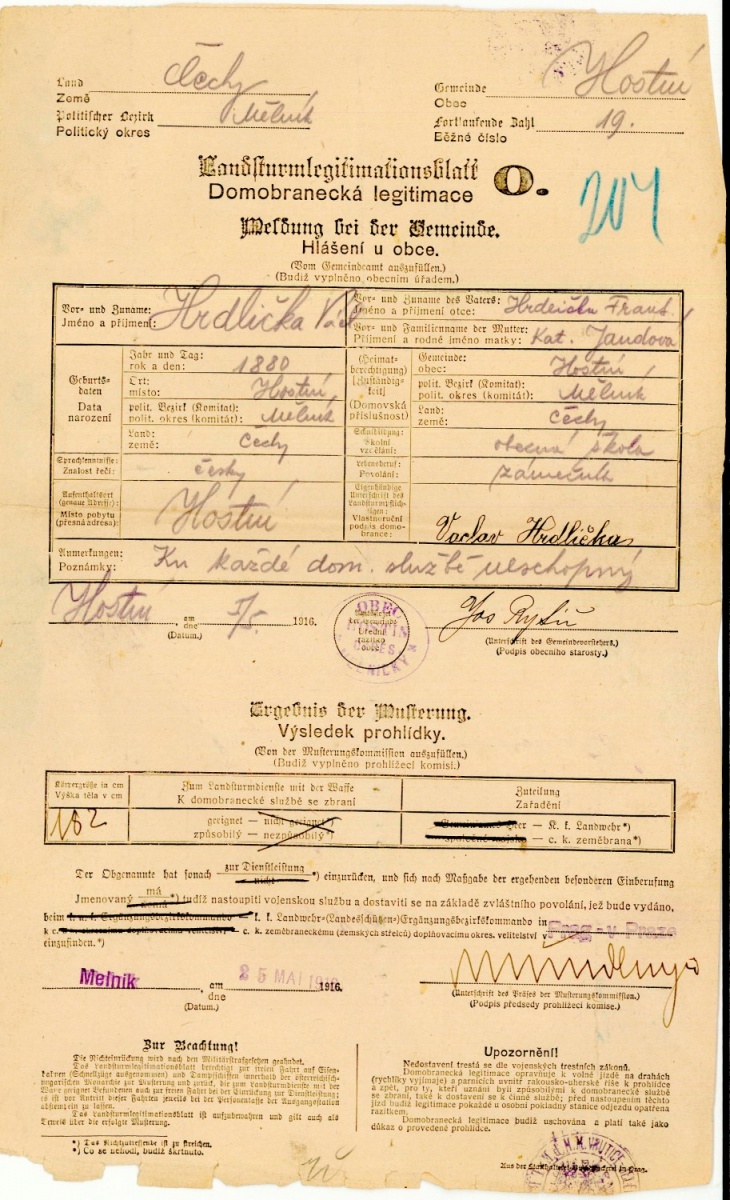 Land
Země
Čechy
Gemeinde
Obec
Hostin
Politischer Bezirk
Politický okres
Mělník
Fortlaufende Zahl
Běžné číslo
19.
Landsturmlegitimationsblatt
Domobranecká legitimace
O.
204
Meldung bei der Gemeinde.
Hlášení u obce.
(Vom Gemeindeamt auszufüllen.)
(Budiž vyplněno obecním úřadem.)
Vor- und Zuname:
Jméno a příjmení:
Hrdlička
Vor- und Zuname des Vaters:
Jméno a příjmení otce:
Hrdlička Frant.
Vor- und Familienname der Mutter:
Příjmení a rodné jméno matky:
Kat. Jandova
Geburts-
daten
Data
narození
Jahr und Tag:
rok a den:
1880
Ort:
místo:
Hostin
polit. Bezirk (Komitat):
polit. okres (komitát):
Mělník
Land:
země:
Čechy
(Heimat-
berechtigung)
[Zuständig-
keit]
(Domovská
příslušnost)
Gemeinde:
obec:
Hostin
polit. Bezirk (Komitat):
polit. okres (komitát):
Mělník
Land:
země:
Čechy
Sprachkenntnisse:
Znalost řečí:
česky
Schulbildung:
Školní
vzdělání:
obecná škola
Lebensberuf:
Povolání:
zámečník
Aufenthaltsort
(genaue Adresse):
Místo pobytu
(přesná adresa):
Hostin
Eigenhändige
Unterschrift des
Landsturmpflich-
tigen:
Vlastnoruční
podpis domo-
brance:
Vaclav Hrdlička
Anmerkungen:
Poznámky:
Ku každé dom. službě
Hostin
am
dne
5/5
1916.
(Datum.)
OBEC
HOSTIN
OKRES
MĚLNICKÝ
Úřední
razítko
obce
Jos
(Unterschrift des Gemeindevorstehers.)
(Podpis obecního starosty.)
Ergebnis der Musterung.
Výsledek prohlídky.
(Von der Musterungskommission auszufüllen.)
(Budiž vyplněno prohlížecí komisí.)
Körpergröße in cm
Výška těla v cm
Zum Landsturmdienste mit der Waffe
K domobranecké službě se zbraní
Zuteilung
Zařadění
162
geeignet — nicht geeignet*)
způsobilý — nezpůsobilý*)
— K. k. Landwehr*)
— c. k. zeměbrana*)
Der Obgenannte hat sonach zur Dienstleistung
nicht *) einzurücken, und sich nach Maßgabe der ergehenden besonderen Einberufung
Jmenovaný má
*) tudíž nastoupiti vojenskou službu a dostaviti se na základě zvláštního povolání, jež bude vydáno,
beim k. u. k. Ergänzungsbezirkskommando — k. k. Landwehr-(Landesschützen-)Ergänzungsbezirkskommando in
k c. — c. k. zeměbraneckému (zemských střelců) doplňovacímu okres. velitelství v
Prag - v Praze
einzufinden.*)
Melnik
am
dne
25 MAI 1916
1916.
(Datum.)
(Unterschrift des Präses der Musterungskommission.)
(Podpis předsedy prohlížecí komise.)
Zur Beachtung!
Die Nichteinrückung wird nach den Militärstrafgesetzen geahndet.
Das Landsturmlegitimationsblatt berechtigt zur freien Fahrt auf Eisen-
bahnen (Schnellzüge ausgenommen) und Dampfschiffen innerhalb der österreichisch-
ungarischen Monarchie zur Musterung und zurück, die zum Landsturmdienste mit der
Waffe geeignet Befundenen auch zur freien Fahrt bei der Einrückung zur Dienstleistung;
es ist vor Antritt dieser Fahrten jeweils bei der Personenkasse der Ausgangsstation
abstempeln zu lassen.
Das Landsturmlegitimationsblatt ist aufzubewahren und gilt auch als
Beweis über die erfolgte Musterung.
*) Das Nichtzutreffende ist zu streichen.
*) Co se nehodí, budiž škrtnuto.
Upozornění!
Nedostavení trestá se dle vojenských trestních zákonů.
Domobranecká legitimace opravňuje k volné jízdě na drahách
(rychlíky vyjímaje) a parnících uvnitř rakousko-uherské říše k prohlídce
a zpět, pro ty, kteří uznáni byli způsobilými k domobranecké službě
se zbraní, také k dostavení se k službě; před nastoupením těchto
jízd budiž legitimace pokaždé u osobní pokladny stanice odjezdu opatřena
razítkem.
Domobranecká legitimace budiž uschována a platí také jako
důkaz o provedené prohlídce.